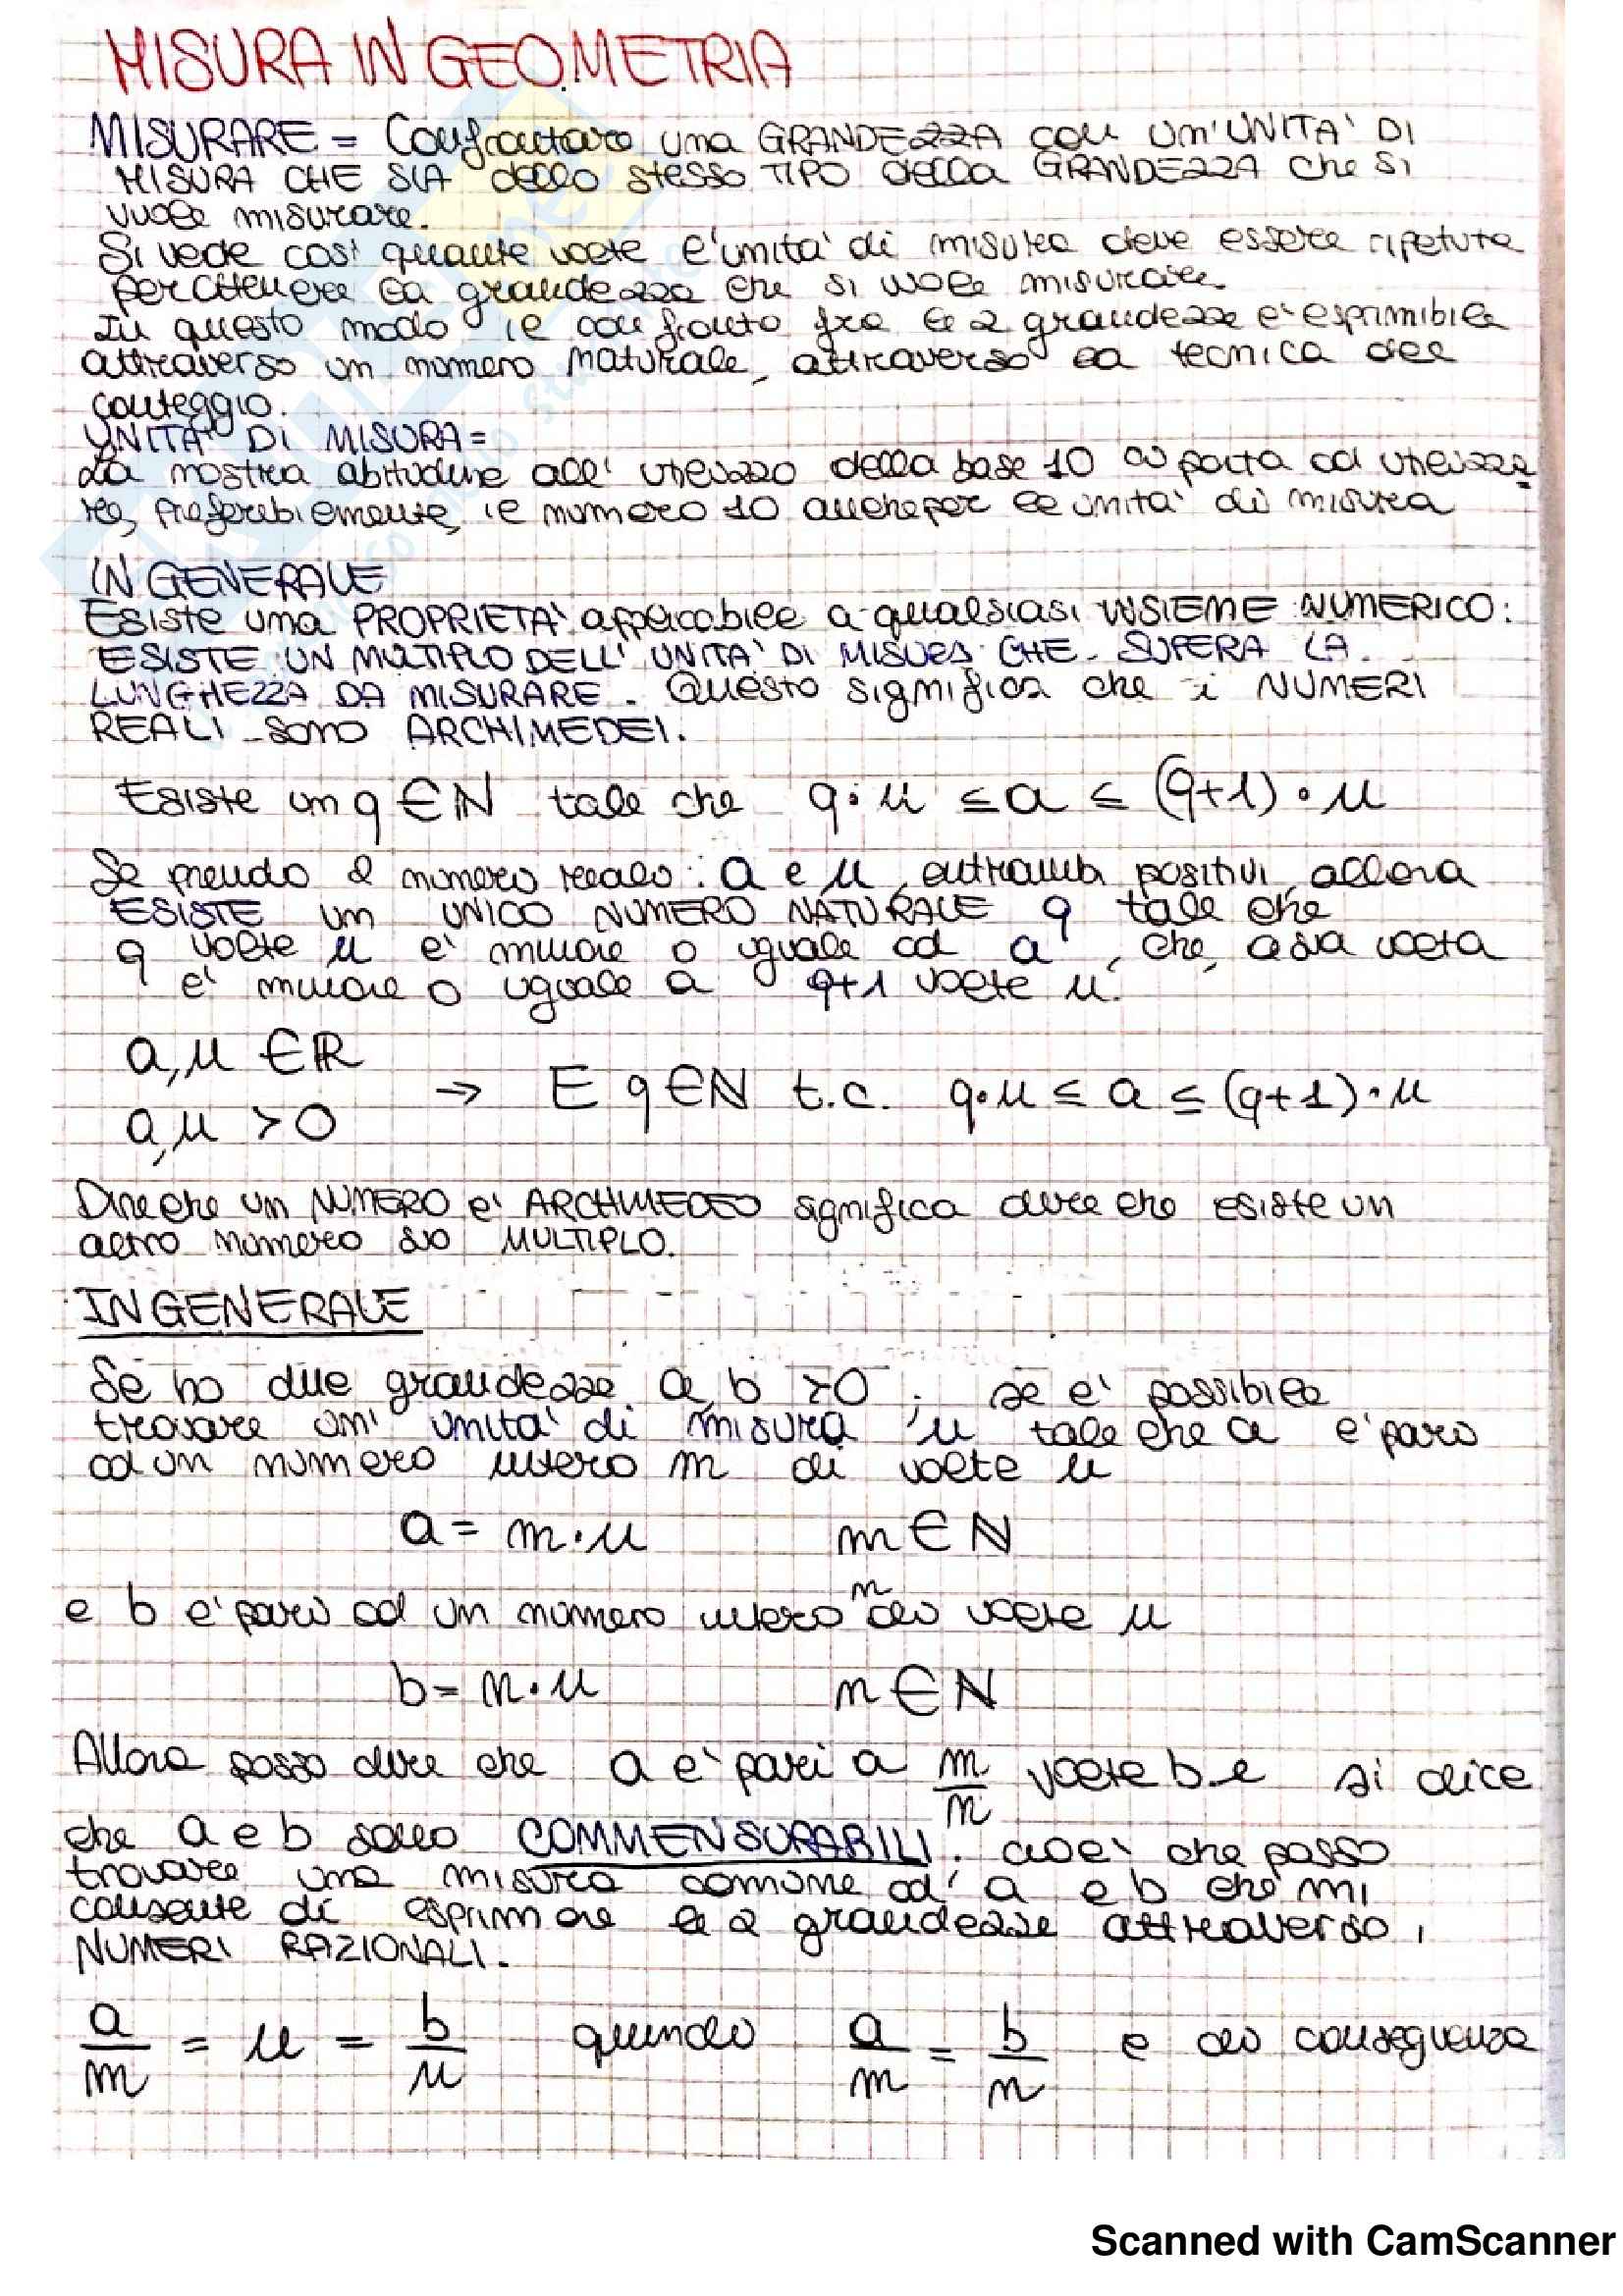 MISURA IN GEOMETRIA
MISURARE = Confrontare una GRANDEZZA con UN'UNITA' DI
MISURA CHE SIA dello stesso TIPO della GRANDEZZA che si
vuole misurare.
Si vede così quante volte l'unità di misura deve essere ripetuta
per ottenere la grandezza che si vuole misurare.
In questo modo il confronto fra le 2 grandezze è esprimibile
attraverso un numero naturale, attraverso la tecnica del
conteggio.
UNITA' DI MISURA =
La nostra abitudine all'utilizzo della base 10 ci porta ad utilizza-
re, preferibilmente, il numero 10 anche per le unità di misura
IN GENERALE
Esiste una PROPRIETA' applicabile a qualsiasi INSIEME NUMERICO:
ESISTE UN MULTIPLO DELL'UNITA' DI MISURA CHE SUPERA LA
LUNGHEZZA DA MISURARE. Questo significa che i NUMERI
REALI sono ARCHIMEDEI.
Esiste un q ∈ ℕ tale che q·u ≤ a ≤ (q+1)·u
Se prendo 2 numero reale: a e u, entrambi positivi, allora
ESISTE un UNICO NUMERO NATURALE q tale che
q volte u è minore o uguale ad a, che, a sua volta
è minore o uguale a q+1 volte u.
a,u ∈ ℝ
a,u > 0 → E q∈ℕ t.c. q·u ≤ a ≤ (q+1)·u
Dire che un NUMERO è ARCHIMEDEO significa dire che esiste un
altro numero suo MULTIPLO.
IN GENERALE
Se ho due grandezze a, b >0; se è possibile
trovare un'unità di misura u tale che a è pari
ad un numero intero m di volte u
a = m·u m ∈ ℕ
e b è pari ad un numero intero n di volte u
b = n·u n ∈ ℕ
Allora posso dire che a è pari a m/n volte b e si dice
che a e b sono COMMENSURABILI. cioè che posso
trovare una misura comune ad a e b che mi
consente di esprimere le 2 grandezze attraverso i
NUMERI RAZIONALI.
a/m = u = b/n quindi a/m = b/n e di conseguenza
Scanned with CamScanner